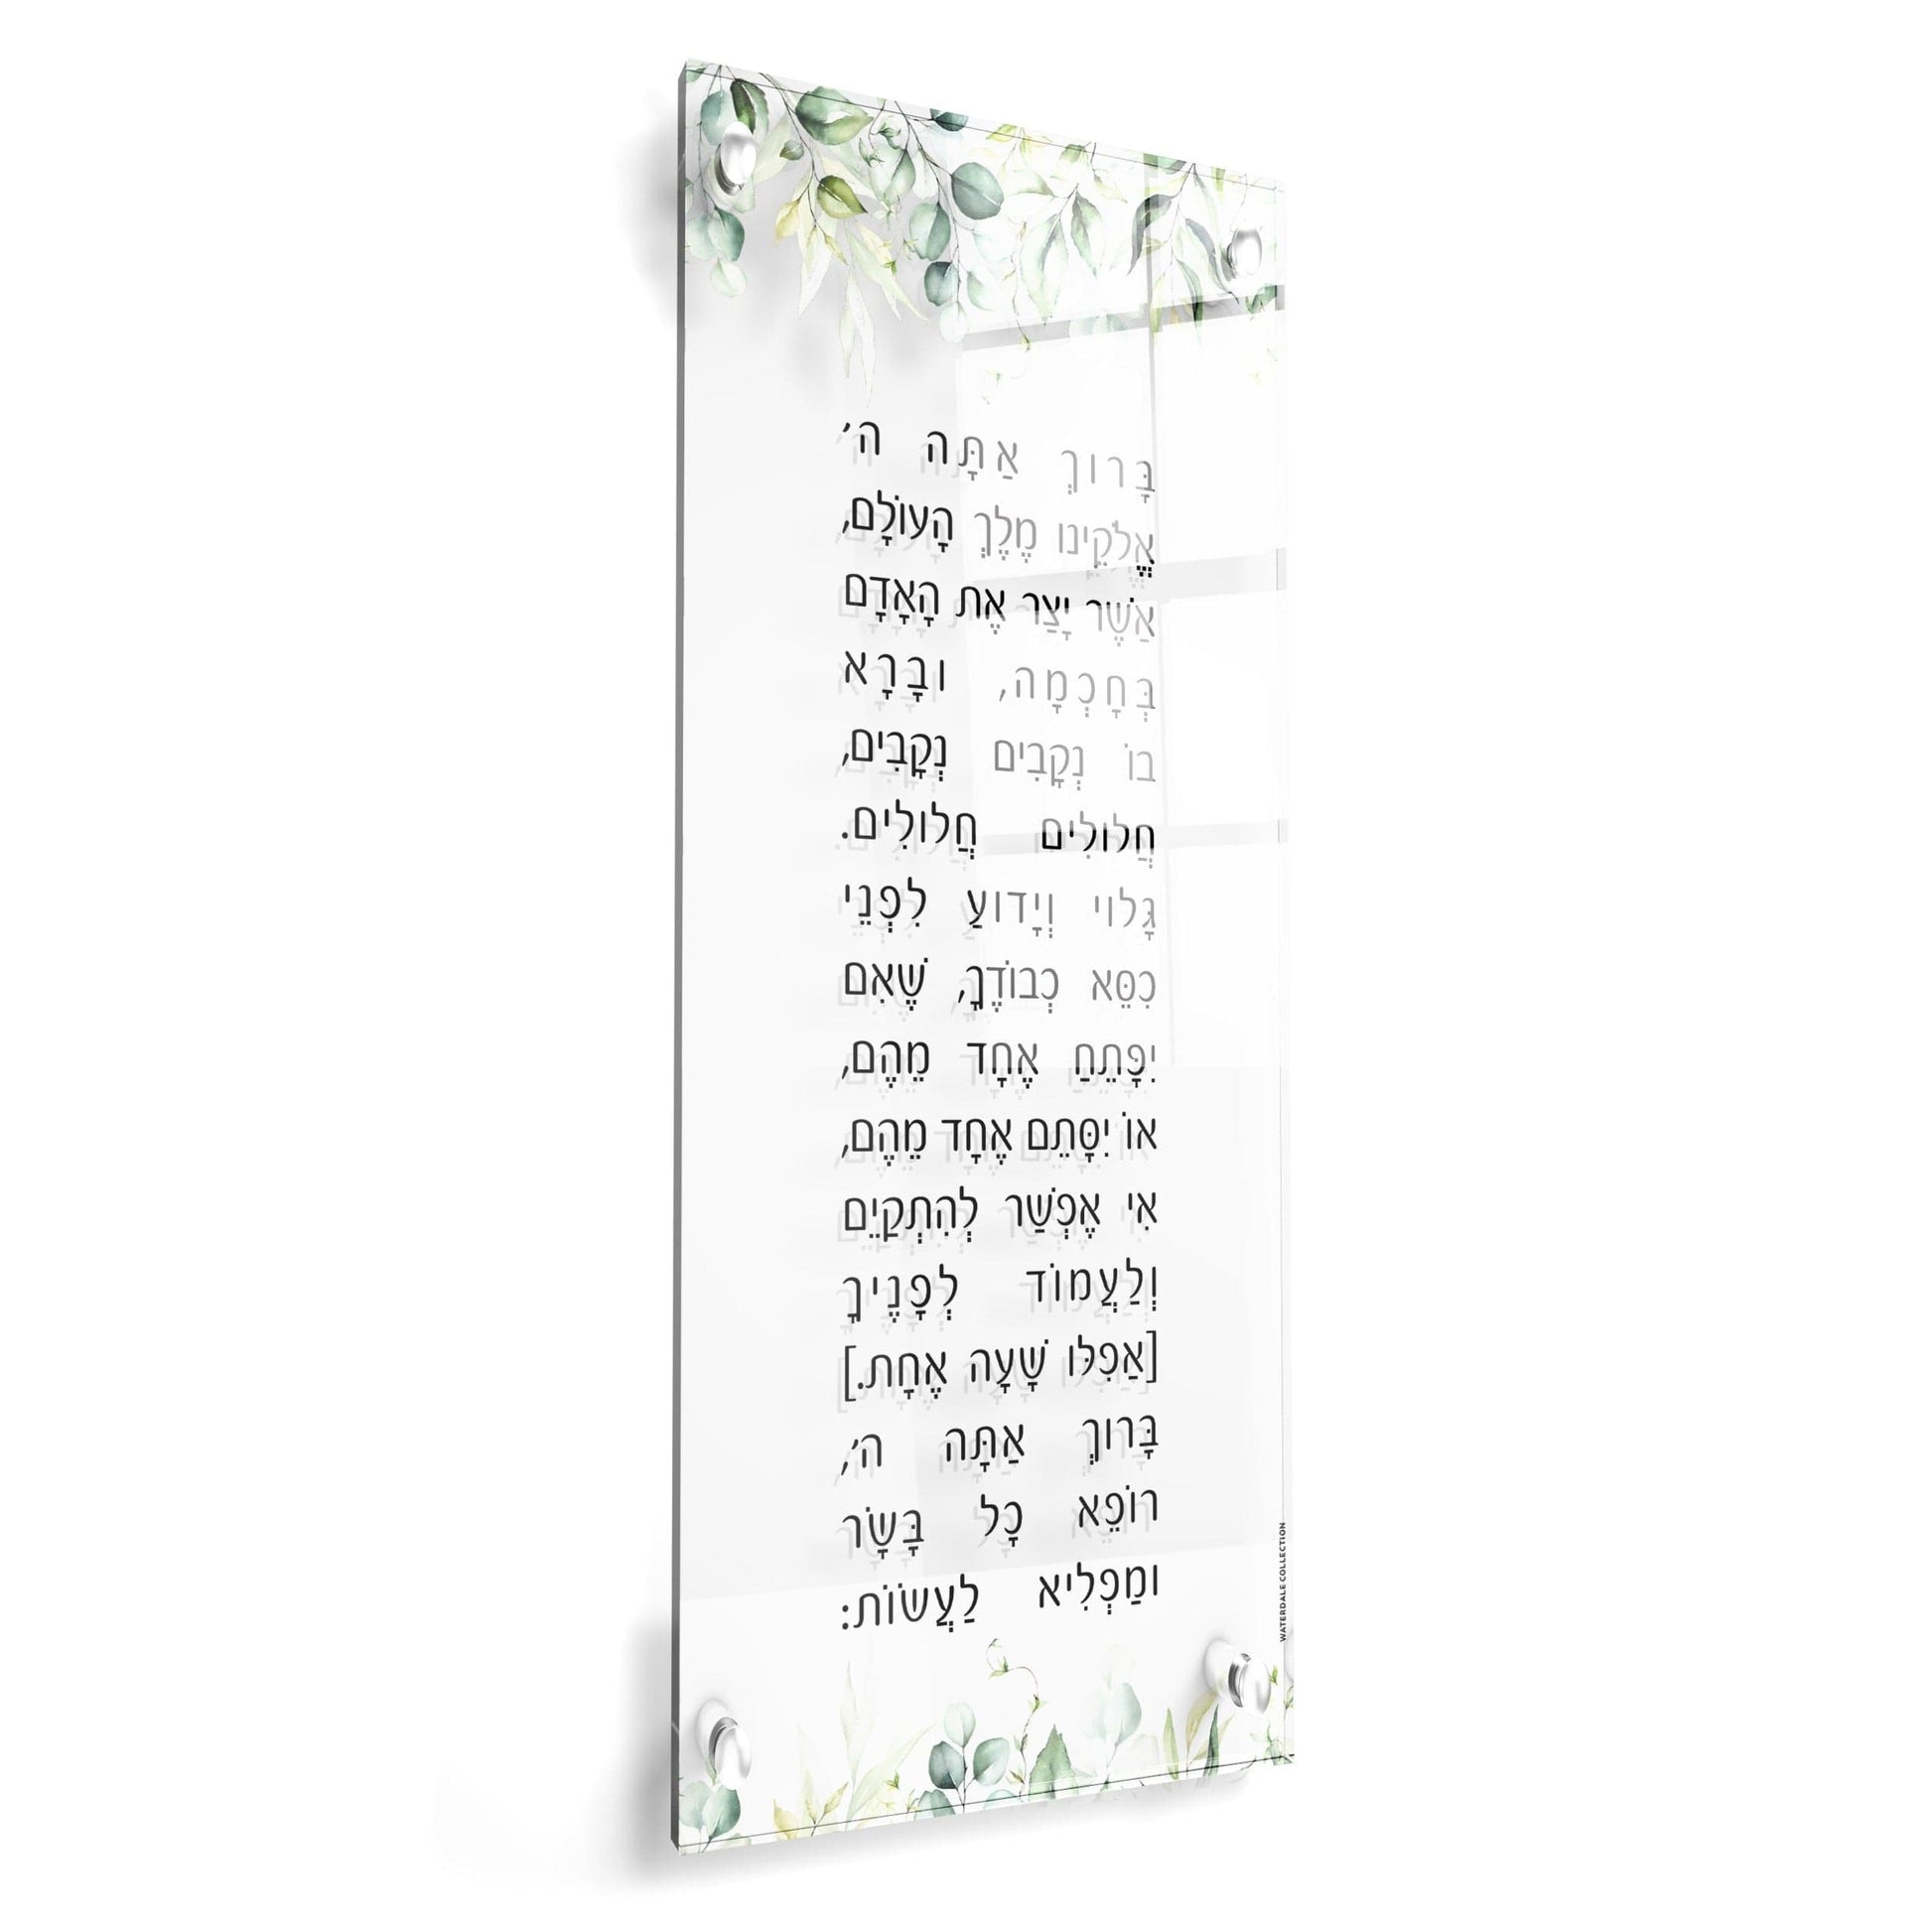 בָּרוּךְ אַתָּה ה׳
אֱלֹקֵינוּ מֶלֶךְ הָעוֹלָם,
אֲשֶׁר יָצַר אֶת הָאָדָם
בְּחָכְמָה, וּבָרָא
בוֹ נְקָבִים נְקָבִים,
חֲלוּלִים חֲלוּלִים.
גָּלוּי וְיָדוּעַ לִפְנֵי
כִסֵּא כְבוֹדֶךָ, שֶׁאִם
יִפָּתֵחַ אֶחָד מֵהֶם,
אוֹ יִסָּתֵם אֶחָד מֵהֶם,
אִי אֶפְשַׁר לְהִתְקַיֵּם
וְלַעֲמוֹד לְפָנֶיךָ
[אַפִלּוּ שָׁעָה אֶחָת.]
בָּרוּךְ אַתָּה ה׳,
רוֹפֵא כָל בָּשָׂר
וּמַפְלִיא לַעֲשׂוֹת:
WATERDALE COLLECTION